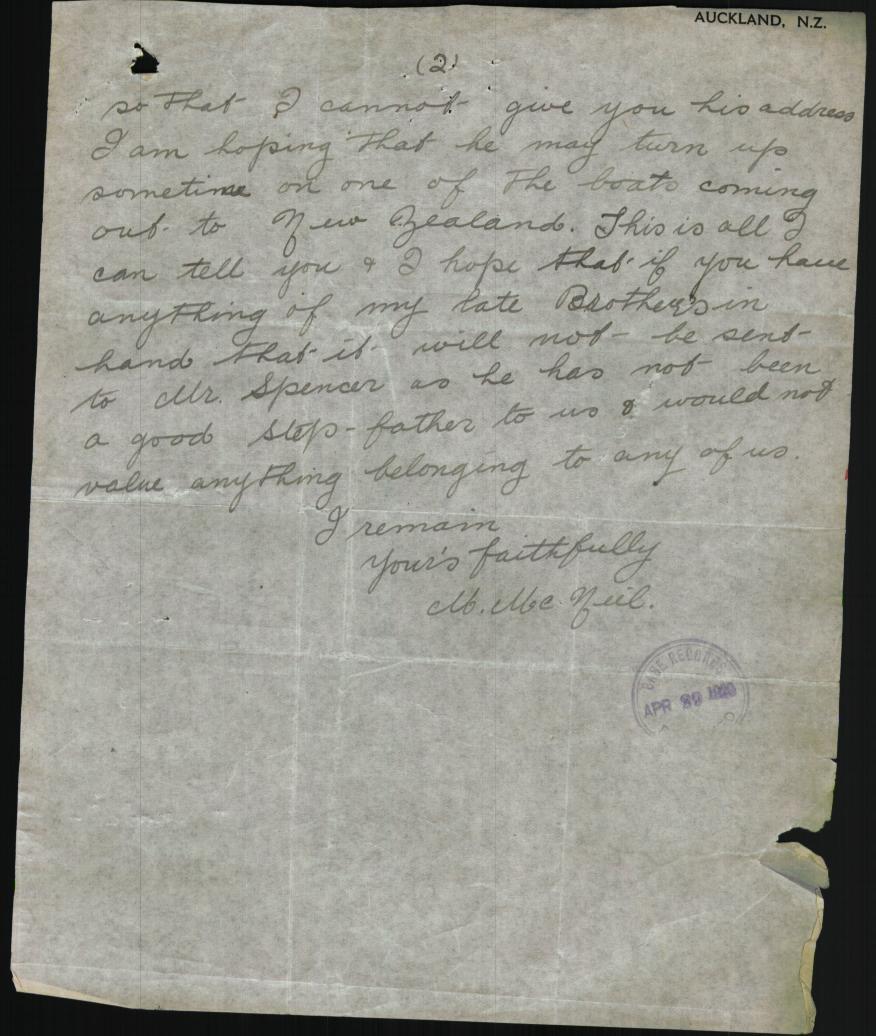 AUCKLAND, N.Z.
(2)
so that I cannot give you his address
I am hoping that he may turn up
sometime on one of the boats coming
out to New Zealand. This is all I
can tell you & I hope that if you have
anything of my late Brother's in
hand that it will not be sent
to Mr. Spencer as he has not been
a good step-father to us & would not
value anything belonging to any of us.
I remain
Your's faithfully
M. Mc Neil.
BASE RECORDS
APR